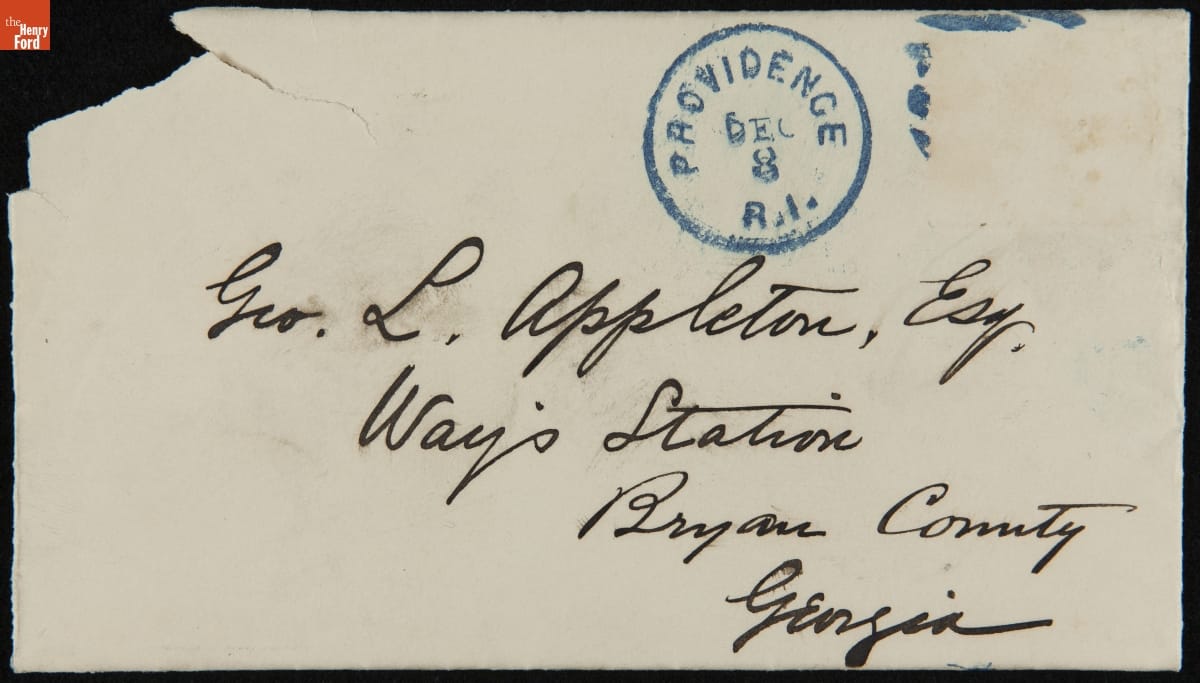 the
Henry
Ford
PROVIDENCE
DEC
8
R.I.
Geo. L. Appleton, Esq.
Way's Station
Bryan County
Georgia